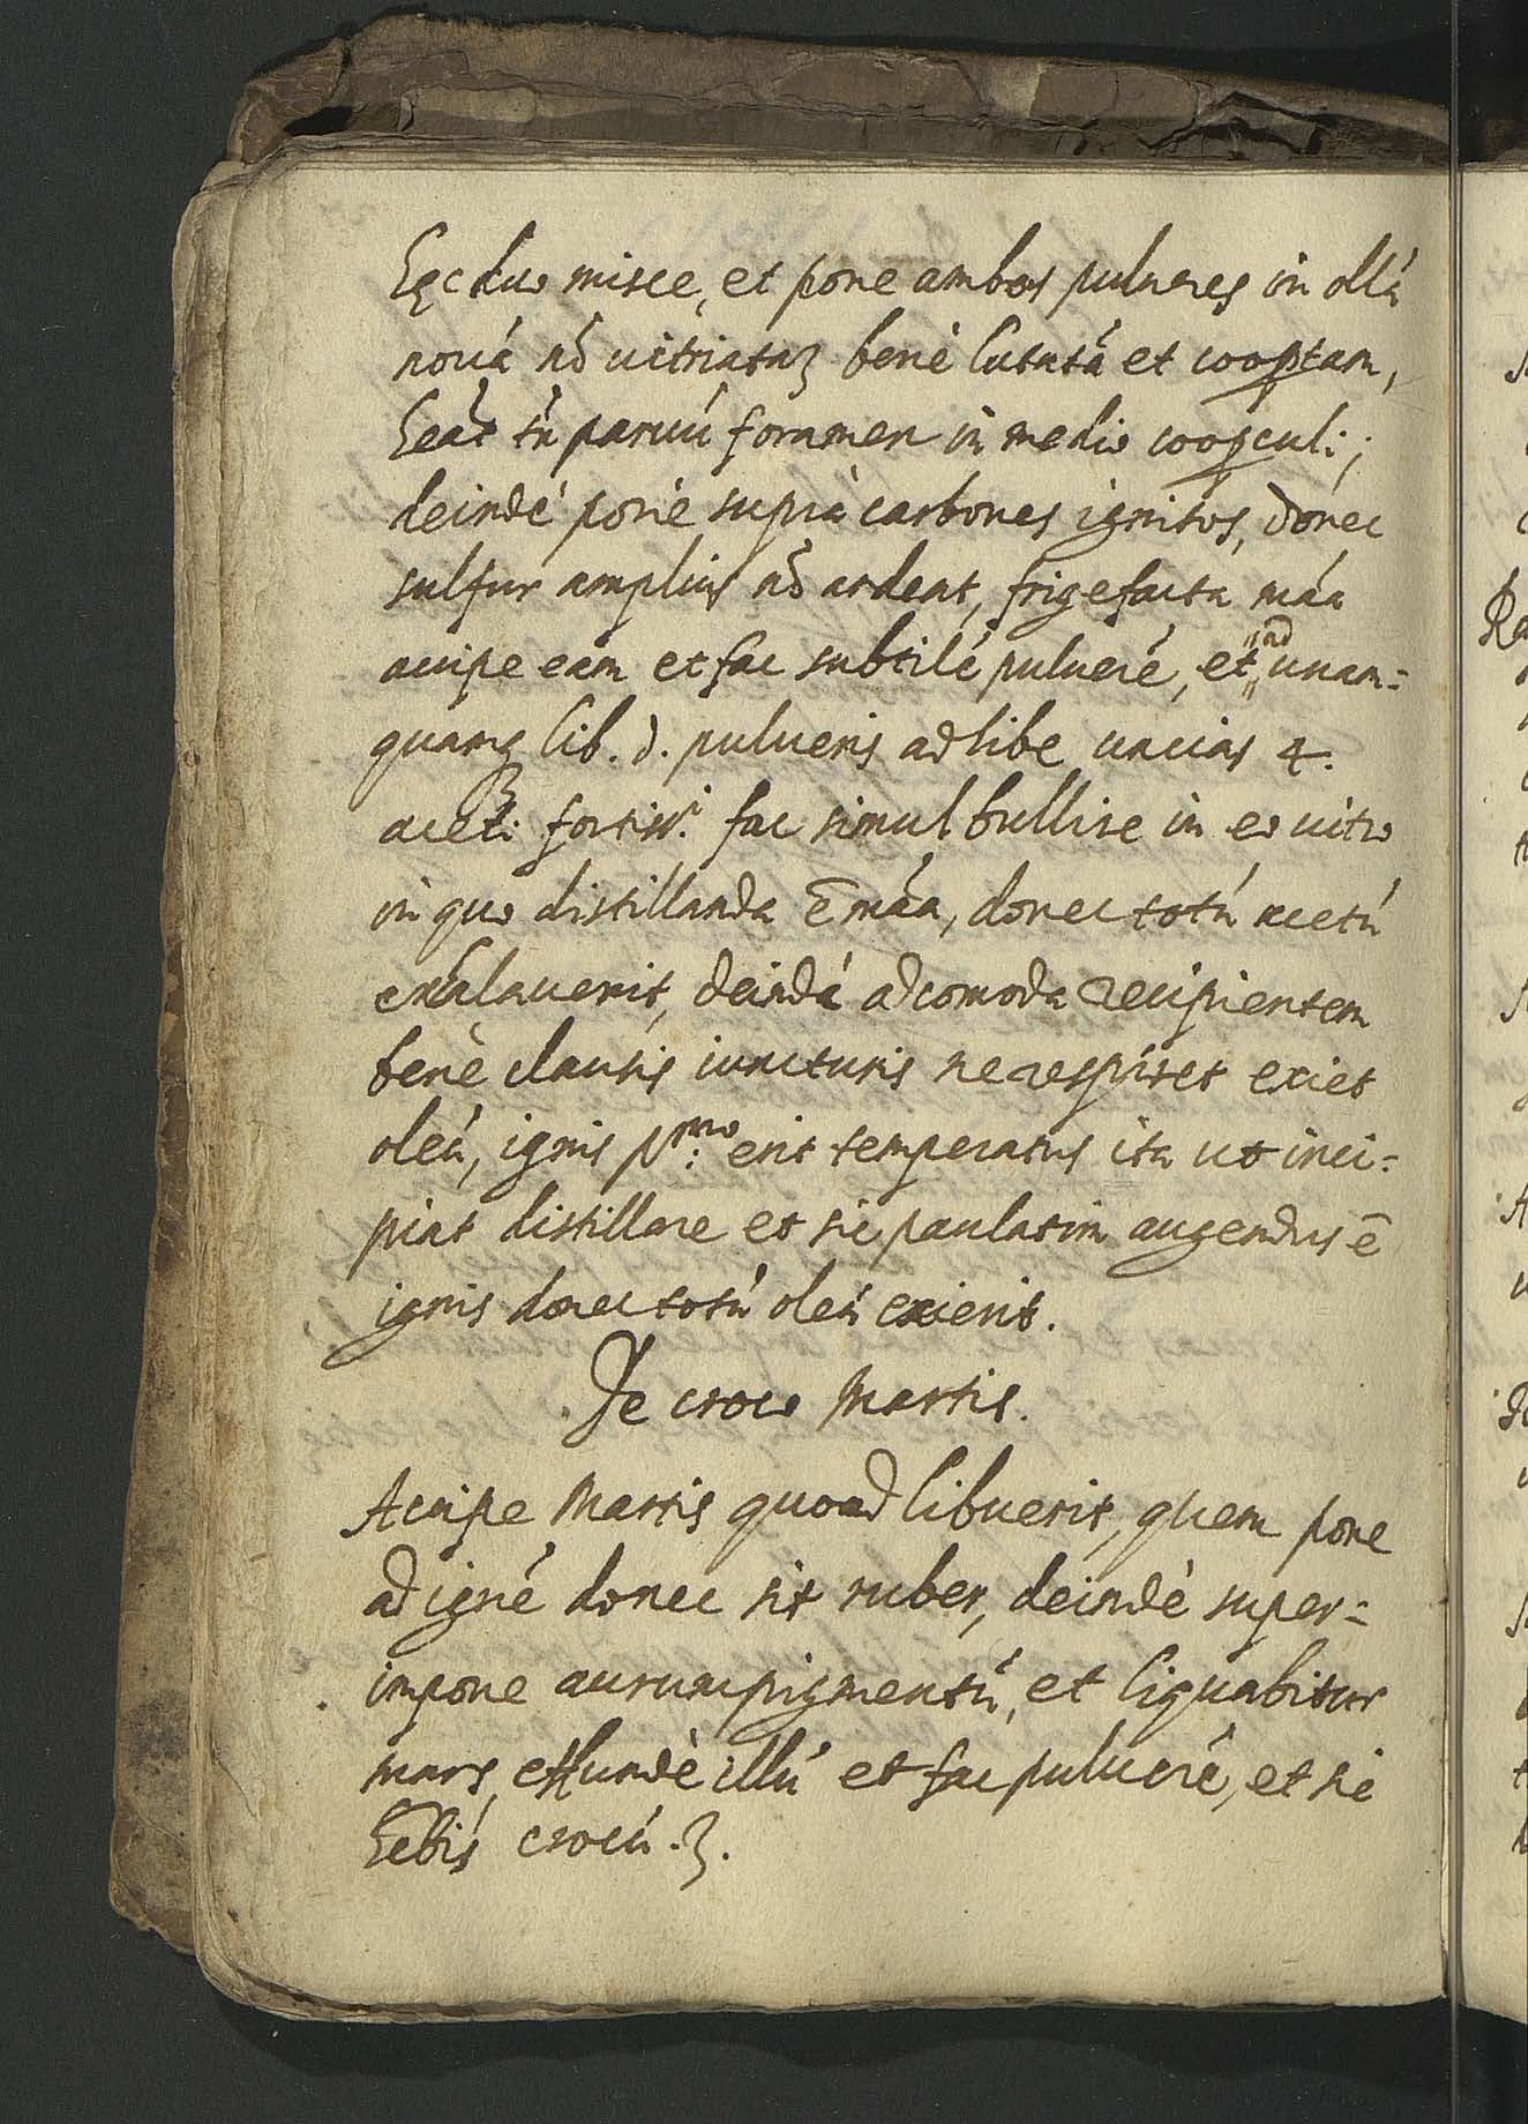 Hęc duo misce, et pone ambos pulueres in ollã
nouã nõ uitriataʒ benè lutatã et coop̱tam,
heat tñ paruũ foramen in medio coop̱culi;
deindè pone suprà carbones ignitos, donec
sulfur amplius nõ ardeat, frigefacta mãa
accipe eam et fac subtilẽ puluerẽ, et ad unam=
quamq lib. d. pulueris adhibe uncias 4.
aceti fortiss.i fac simul bullire in eo uitro
in quo distillanda ē mãa, donec totũ acetũ
exalauerit, deindè adcomoda recipientem
benè clausis iuncturis ne respiret exiet
oleũ, ignis p:mo erit temperatus ita ut inci=
piat distillare et sic paulatim augendus ē
ignis donec totũ oleũ exierit.
De croco Martis.
Accipe Martis quoad libuerit, quem pone
ad ignẽ donec sit ruber, deindè super=
impone aurumpigmentũ, et liquabitur
mars, effundè illũ et fac puluerẽ, et sic
hebis crocũ.